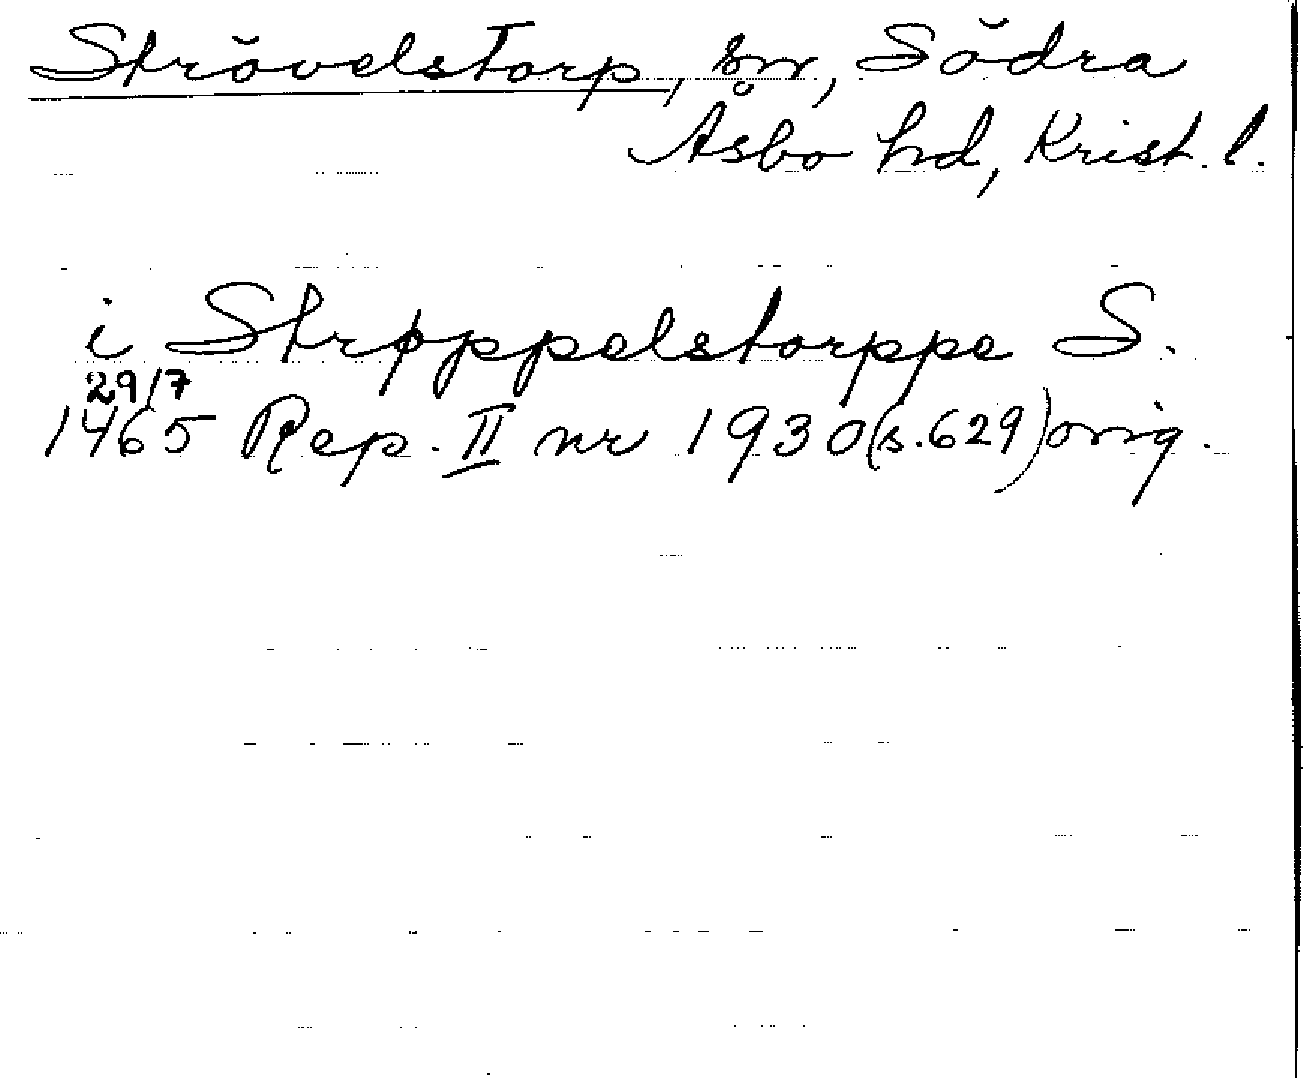 Strövelstorp, sn, Södra
Åsbo hd, Krist. l.
i Strøppelstorppe S.
29/7
1465 Rep. II nr 1930 (s. 629) orig.